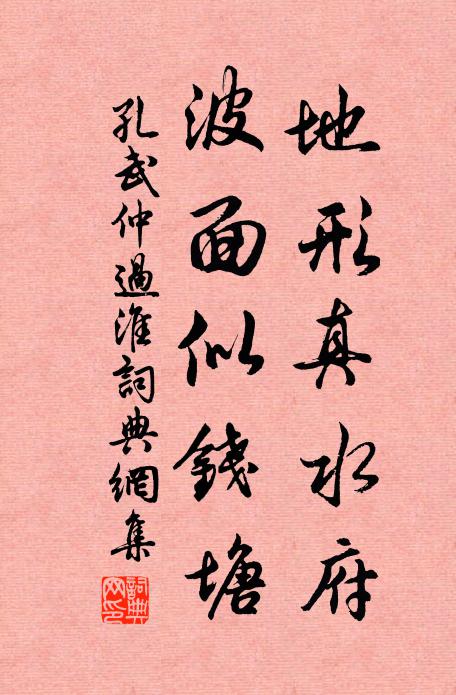 地形真水府
波面似錢塘
孔武仲過淮詞典網集
詞典網印